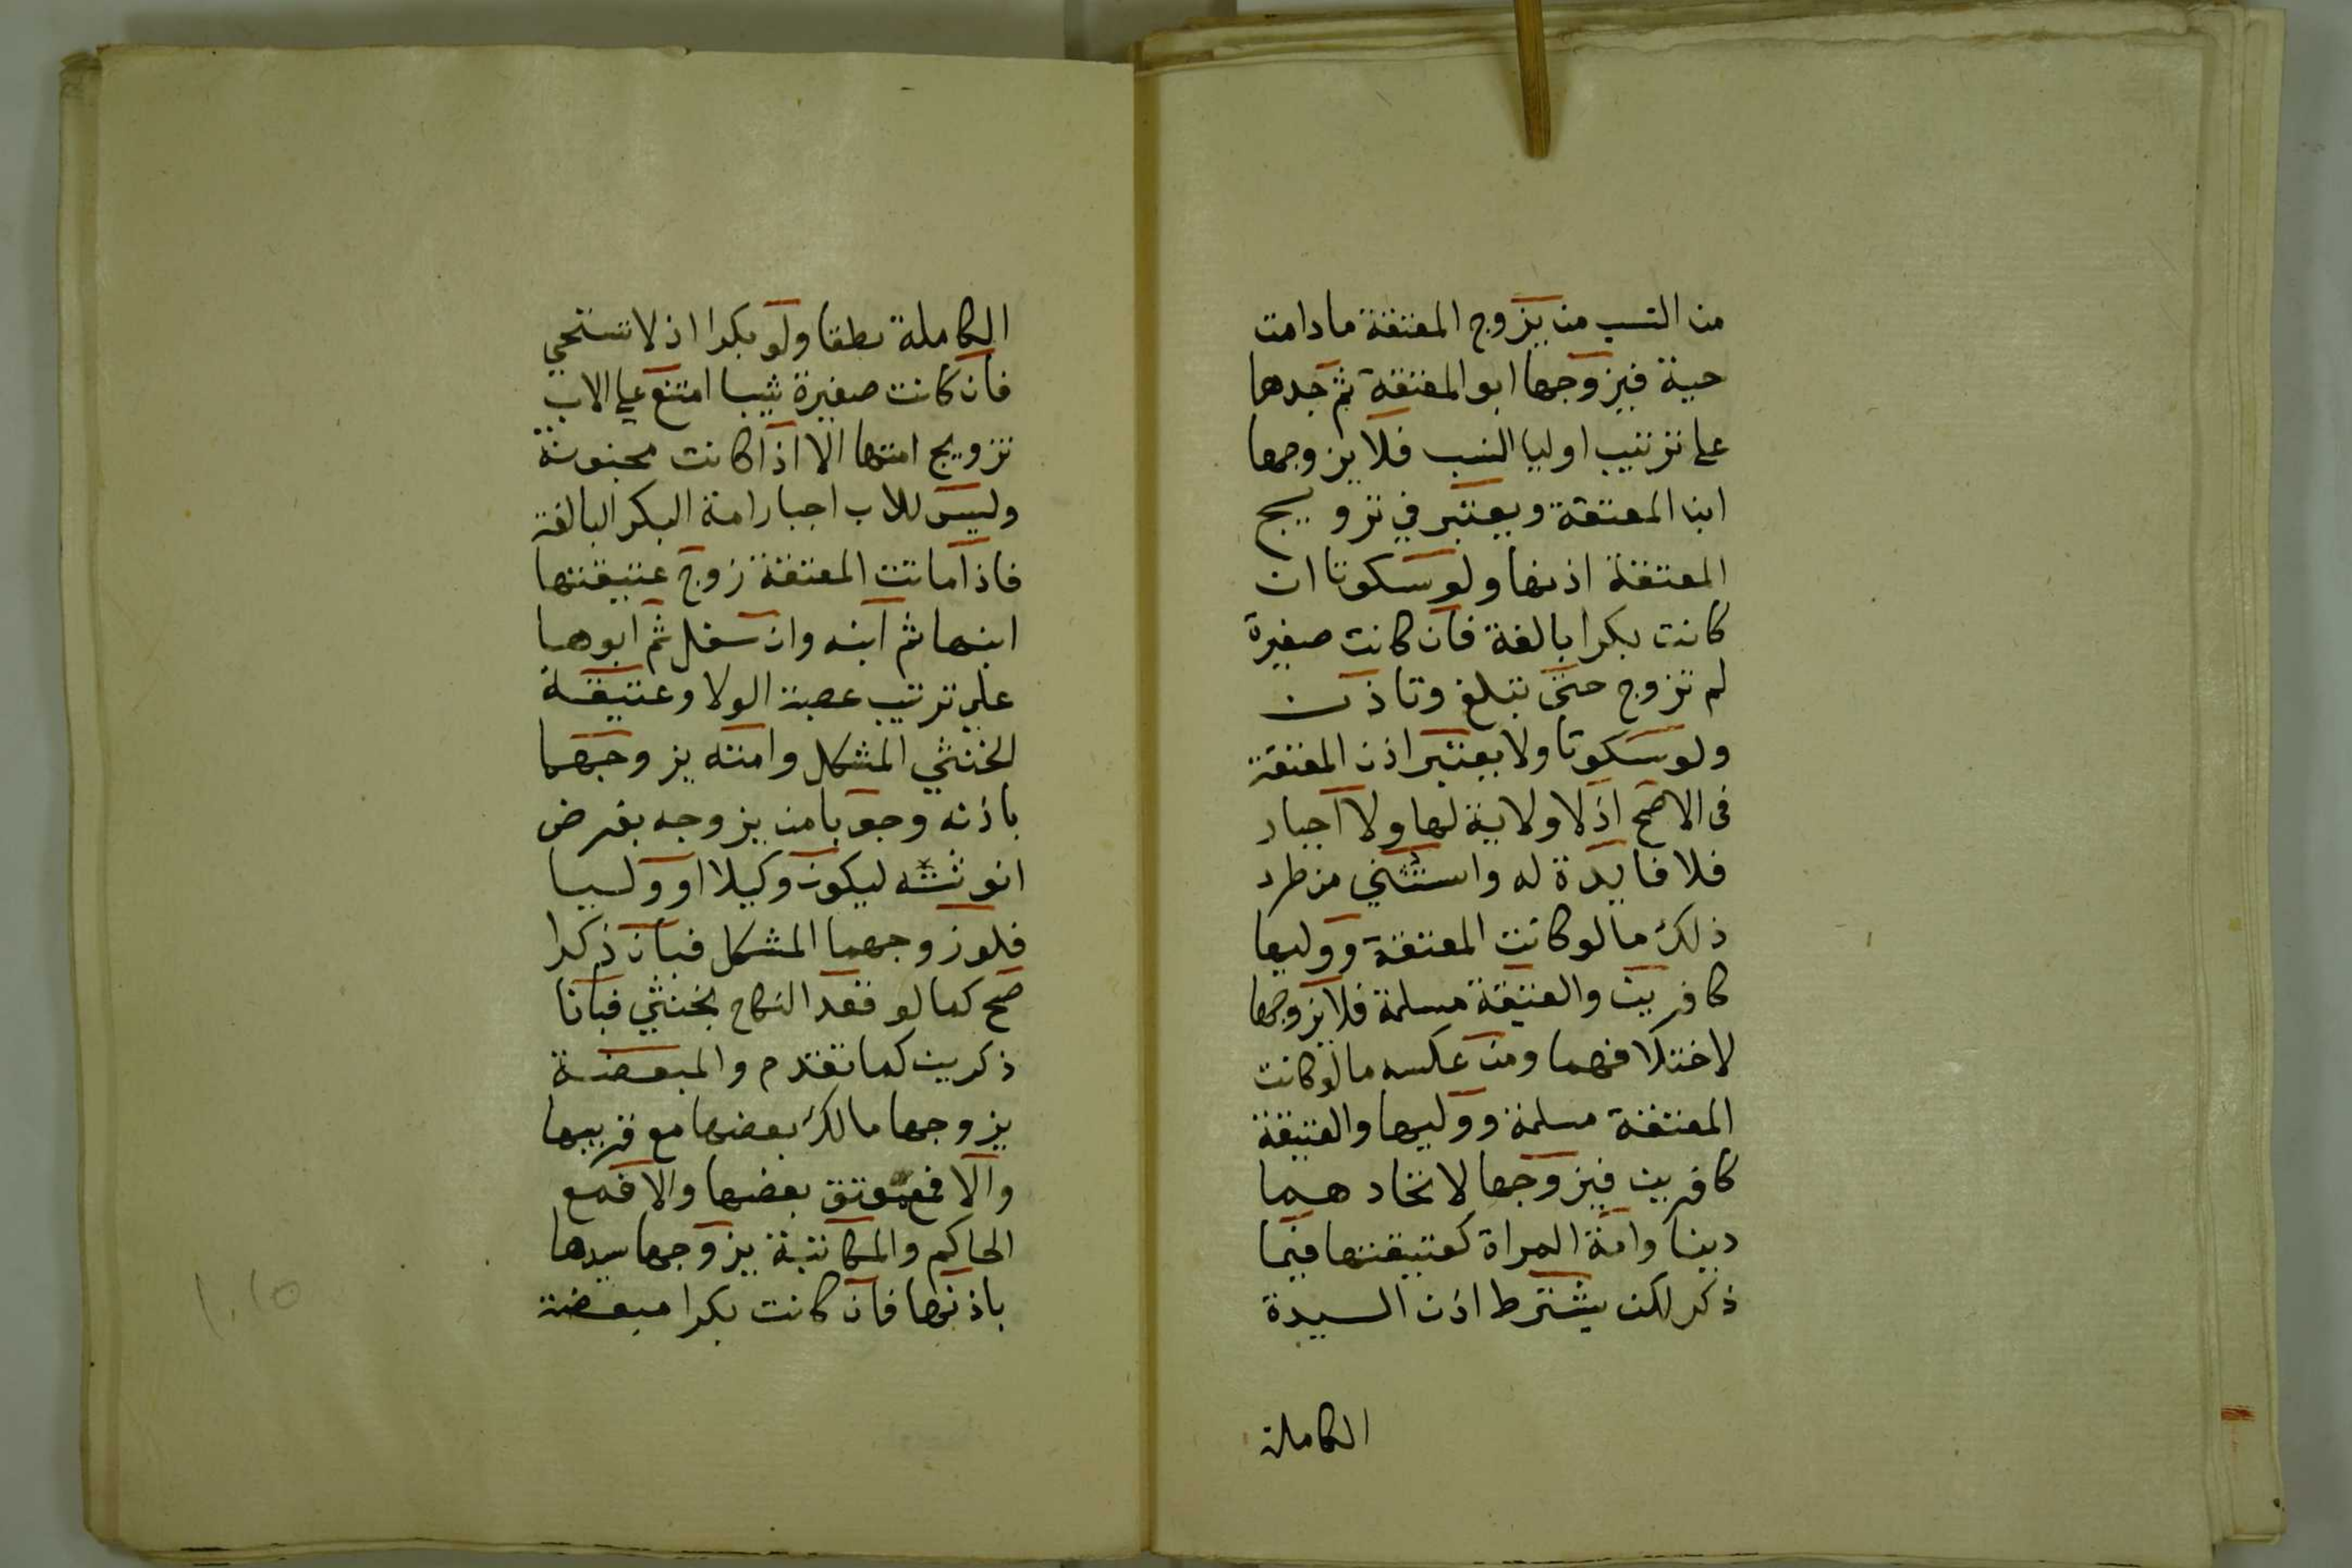 من النسب من يزوج المعتقة ما دامت
حية فيزوجها ابو المعتقة ثم جدها
على ترتيب اوليا النسب فلا يزوجها
ابن المعتقة ويعتبر في تزويج
المعتقة اذنها ولو سكوتا ان
كانت بكرا بالغة فان كانت صغيرة
لم تزوج حتى تبلغ وتاذن
ولو سكوتا ولا يعتبر اذن المعتقة
فى الاصح اذ لا ولاية لها ولا اجبار
فلا فايدة له واستثني من طرد
ذلك ما لو كانت المعتقة ووليها
كافرين والعتيقة مسلمة فلا يزوجها
لاختلافهما ومن عكسه ما لو كانت
المعتقة مسلمة ووليها والعتيقة
كافرين فيزوجها لاتحادهما
دينا وامة المراة كعتيقتها فيما
ذكر لكن يشترط اذن السيدة
الكاملة
الكاملة نطقا ولو بكرا اذ لا تستحي
فان كانت صغيرة ثيبا امتنع على الاب
تزويج امتها الا اذا كانت مجنونة
وليس للاب اجبار امة البكر البالغة
فاذا ماتت المعتقة زوج عتيقتها
ابنها ثم ابنه وان سفل ثم ابوها
على ترتيب عصبة الولا وعتيقة
الخنثي المشكل وامته يزوجهما
باذنه وجوبا من يزوجه بفرض
انوثته ليكون وكيلا او وليا
فلو زوجهما المشكل فبان ذكرا
صح كما لو عقد النكاح بخنثي فبانا
ذكرين كما تقدم والمبعضة
يزوجها مالك بعضها مع قريبها
والا فمع معتق بعضها والا فمع
الحاكم والمكاتبة يزوجها سيدها
باذنها فان كانت بكرا مبعضة